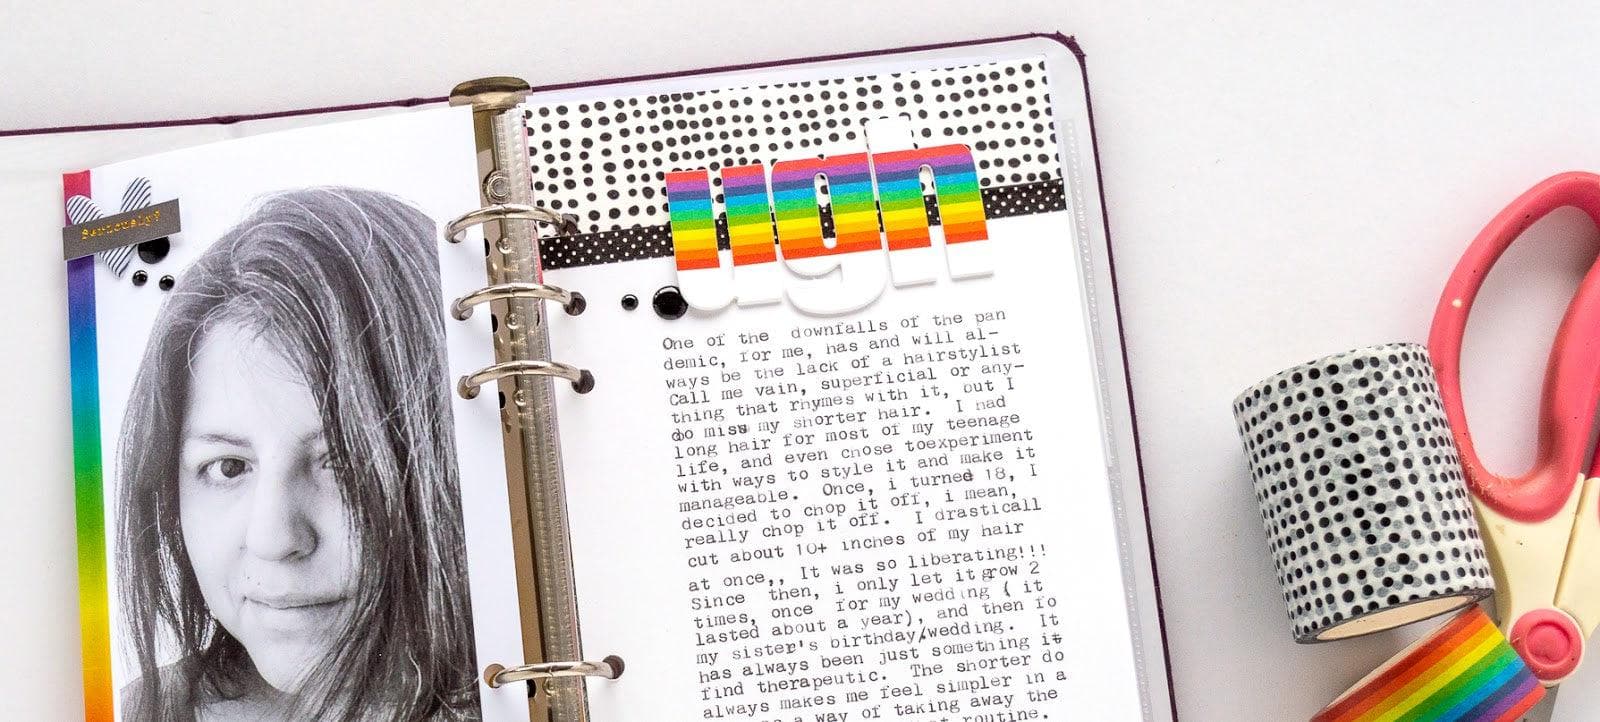 Seriously?
ugh
One of the downfalls of the pan
demic, for me, has and will al-
ways be the lack of a hairstylist
Call me vain, superficial or any-
thing that rhymes with it, but I
do miss my shorter hair. I had
long hair for most of my teenage
life, and even chose toexperiment
with ways to style it and make it
manageable. Once, i turned 18, I
decided to chop it off, i mean,
really chop it off. I drasticall
cut about 10+ inches of my hair
at once,, It was so liberating!!!
Since then, i only let it grow 2
times, once for my wedding ( it
lasted about a year), and then fo
my sister's birthday/wedding. It
has always been just something it
find therapeutic. The shorter do
always makes me feel simpler in a
a way of taking away the
routine.